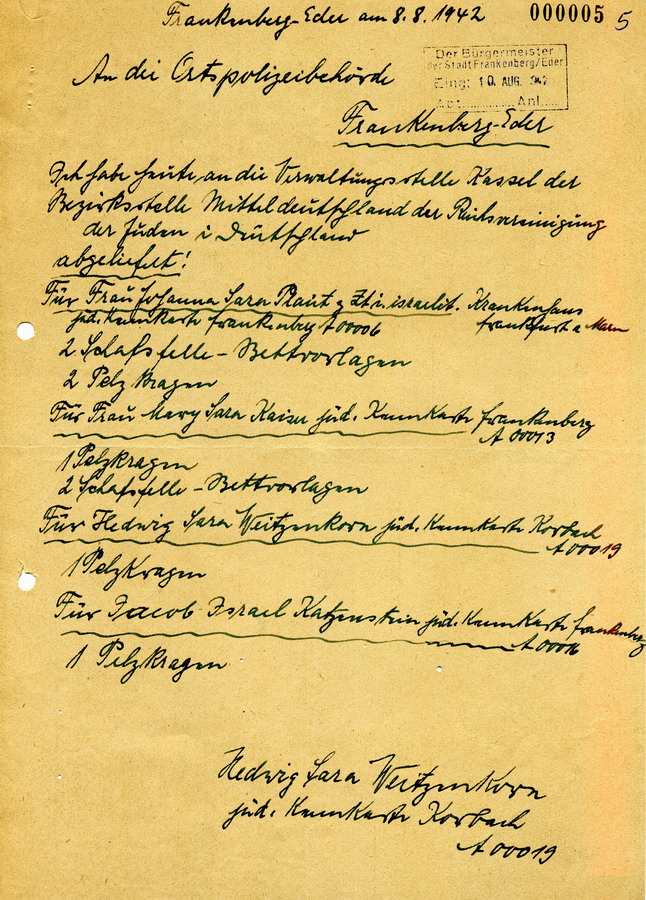 Frankenberg-Eder am 8.8.1942
000005 5
Der Bürgermeister
der Stadt Frankenberg/Eder
Eing: 10. AUG. 942
Abt. Anl.
An die Ortspolizeibehörde
Frankenberg-Eder
Ich habe heute, an die Verwaltungsstelle Kassel der
Bezirksstelle Mitteldeutschland der Reichsvereinigung
der Juden i Deutschland
abgeliefert!
Für Frau Johanna Sara Plaut z Zt. i. israelit. Krankenhaus
jüd. Kennkarte Frankenberg A00006 Frankfurt a Main
2 Schafsfelle-Bettvorlagen
2 Pelzkragen
Für Frau Mary Sara Kaiser jüd. Kennkarte Frankenberg
A 00013
1 Pelzkragen
2 Schafsfelle-Bettvorlagen
Für Hedwig Sara Weitzenkorn jüd. Kennkarte Korbach
A00019
1 Pelzkragen
Für Jacob Israel Katzenstein jüd. Kennkarte Frankenberg
1 Pelzkragen
Hedwig Sara Weitzenkorn
jüd. Kennkarte Korbach
A00019